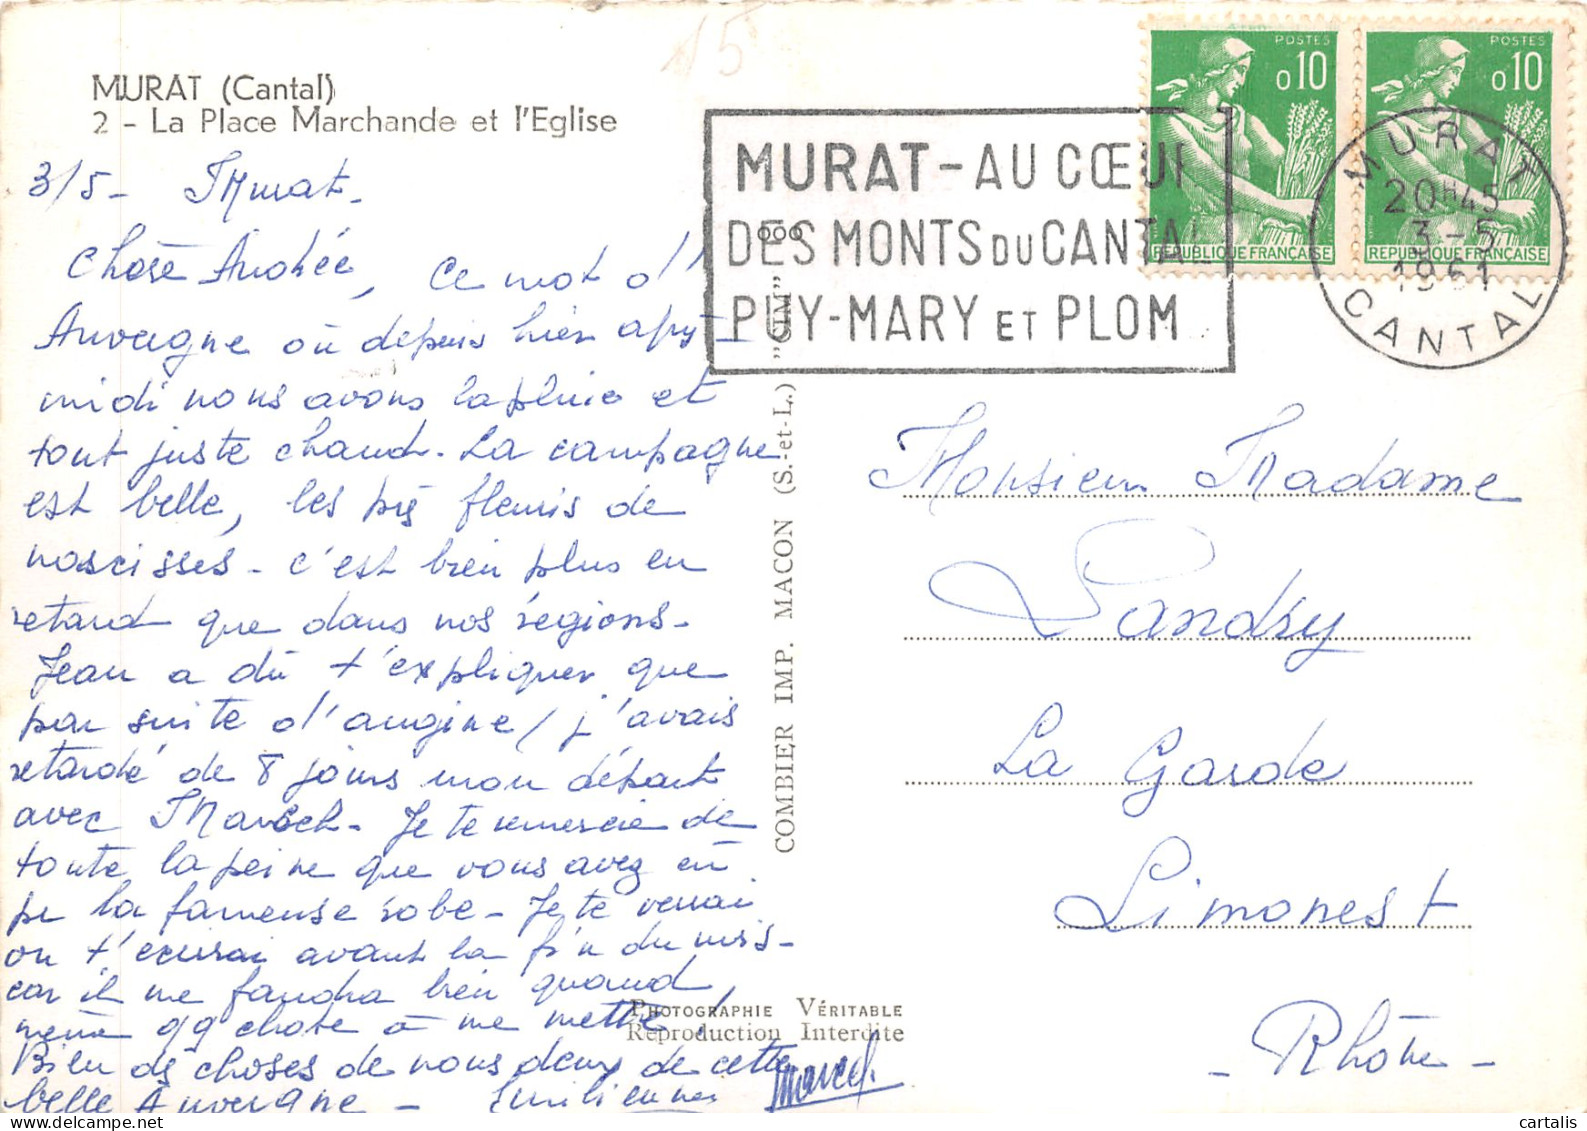 15
MURAT (Cantal)
2 - La Place Marchande et l'Eglise
POSTES
0,10
REPUBLIQUE FRANÇAISE
POSTES
0,10
REPUBLIQUE FRANÇAISE
MURAT - AU CŒUR
DES MONTS DU CANTAL
PUY-MARY ET PLOM
MURAT
20H45
3-5
1961
CANTAL
3/5- Murat.
Chère Andrée, ce mot d'
Auvergne où depuis hier après-
midi nous avons la pluie et
tout juste chaud. La campagne
est belle, les prés fleuris de
narcisses. C'est bien plus en
retard que dans nos régions.
Jean a dû t'expliquer que
par suite d'angine, j'avais
retardé de 8 jours mon départ
avec Marcel. Je te remercie de
toute la peine que vous avez eu
pr la fameuse robe. Je te verrai
ou t'écrirai avant la fin du mois-
car il me faudra bien quand
même qq chose à me mettre!
Bien ds choses de nous deux de cette
belle Auvergne - Emilienne
Marcel
COMBIER IMP. MACON (S.-et-L.) "CIM"
Monsieur Madame
Landry
La Garde
Limonest
- Rhône -
PHOTOGRAPHIE VÉRITABLE
Reproduction Interdite
cartalis